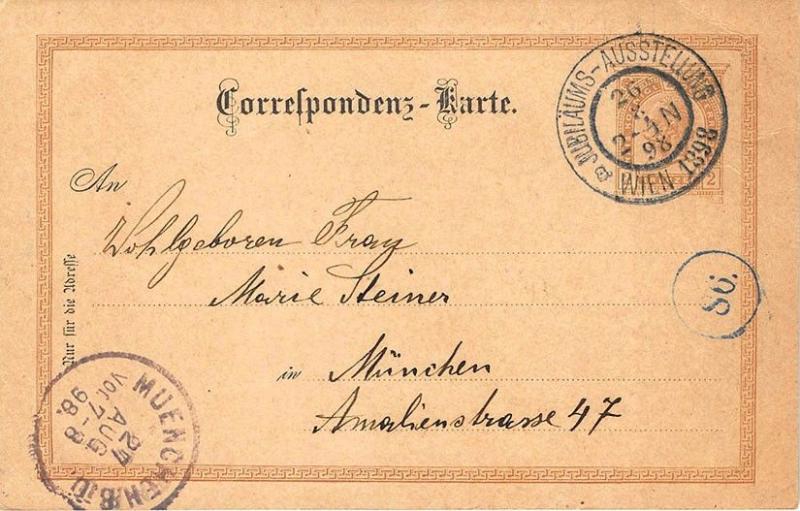 Correspondenz-Karte.
JUBILÄUMS-AUSSTELLUNG
26
2-3N
98
WIEN 1898
2
An
Wohlgeboren Frau
Marie Steiner
in München
Amalienstrasse 47
Nur für die Adresse
MUENCHEN
27
AUG
VOR 7-8
98.